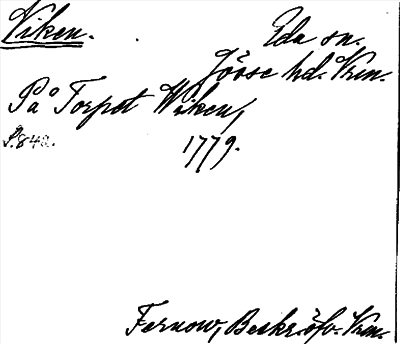 Viken. Eda sn.
Jösse hd. Vrm.
På Torpet Wiken,
S. 842. 1779.
Fernow, Beskr. öfv. Vrm.